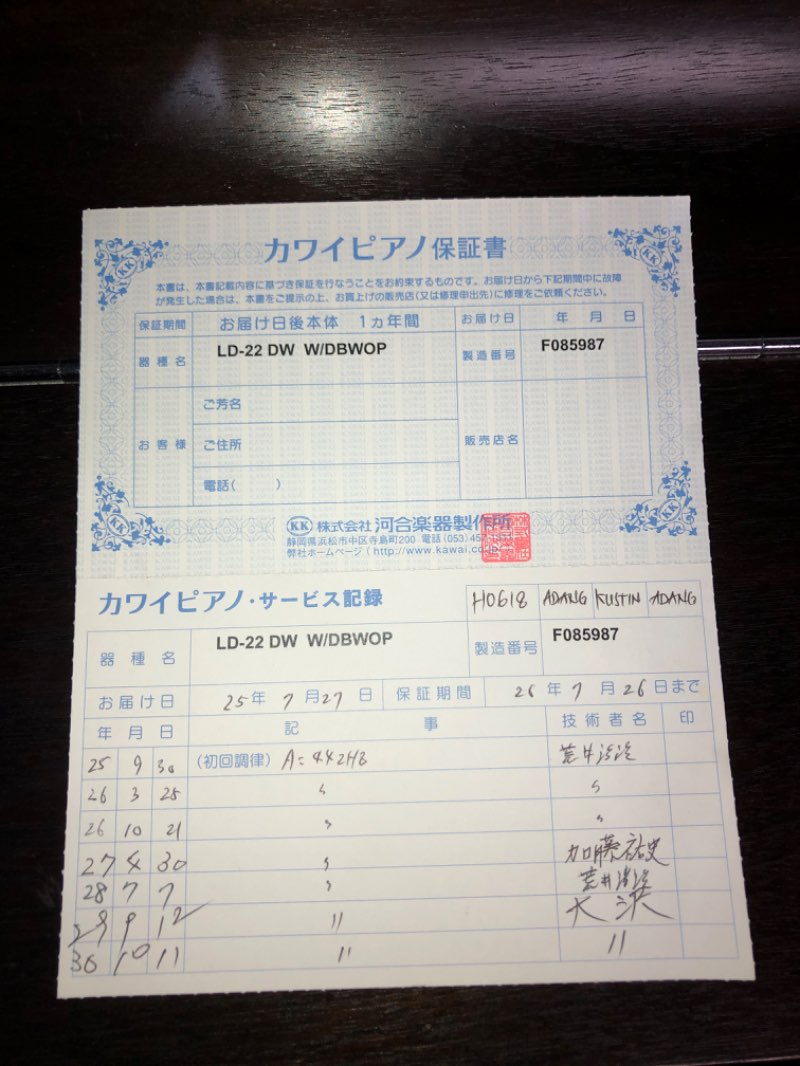 カワイピアノ保証書
本書は、本書記載内容に基づき保証を行なうことをお約束するものです。お届け日から下記期間中に故障
が発生した場合は、本書をご提示の上、お買上げの販売店(又は修理申出先)に修理をご依頼ください。
保証期間 お届け日後本体 1ヵ年間 お届け日 年 月 日
器種名 LD-22 DW W/DBWOP 製造番号 F085987
お客様 ご芳名 販売店名
ご住所
電話( )
KK 株式会社 河合楽器製作所
静岡県浜松市中区寺島町200 電話(053)
弊社ホームページ( http://www.kawai.co.jp
カワイピアノ・サービス記録 H0618 ADANG KUSTIN ADANG
器種名 LD-22 DW W/DBWOP 製造番号 F085987
お届け日 25年 7月27日 保証期間 26年 7月 26日まで
年 月 日 記 事 技術者名 印
25 9 30 (初回調律) A=442HZ 荒井
26 3 25 〃 〃
26 10 21 〃 〃
27 4 30 〃 加藤祐史
28 7 7 〃 荒井
29 9 12 〃 大沢
30 10 11 〃 〃